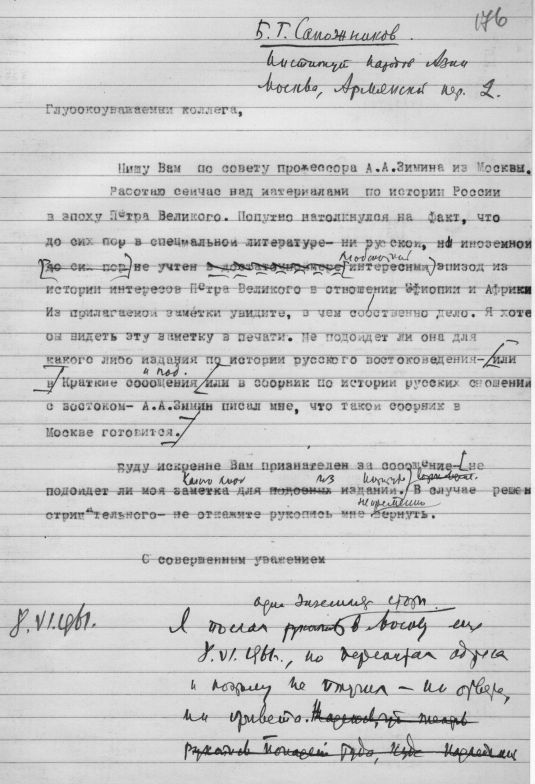 176
Б. Т. Сапожников.
Институт народов Азии
Москва, Армянский пер. 2.
Глубокоуваемаеми коллега,
Пишу Вам по совету профессора А.А.Зимина из Москвы.
Работаю сейчас над материалами по истории России
в эпоху Петра Великого. Попутно натолкнулся на факт, что
до сих пор в специальной литературе- ни русской, ни иноземной
до сих пор не учтен в достаточной мере интересный эпизод из
истории интересов Петра Великого в отношении Эфиопии и Африки
Из прилагаемой заметки увидите, в чем собственно дело. Я хоте
бы видеть эту заметку в печати. Не подойдет ли она для
какого либо издания по истории русского востоковедения- или
и под.
в Краткие сообщения или в сборник по истории русских сношений
с востоком- А.А.Зимин писал мне, что такой сборник в
Москве готовится.
Буду искренне Вам признателен за сообщение- не
подойдет ли моя заметка для подобных изданий. В случае решен
отрицательного- не откажите рукопись мне вернуть.
С совершенным уважением
8.VI.1961.
один экземпляр стати.
Я послал в Москву еще
8.VI.1961., но перепутал адреса
и потому не получил – ни ответа,
ни привета.